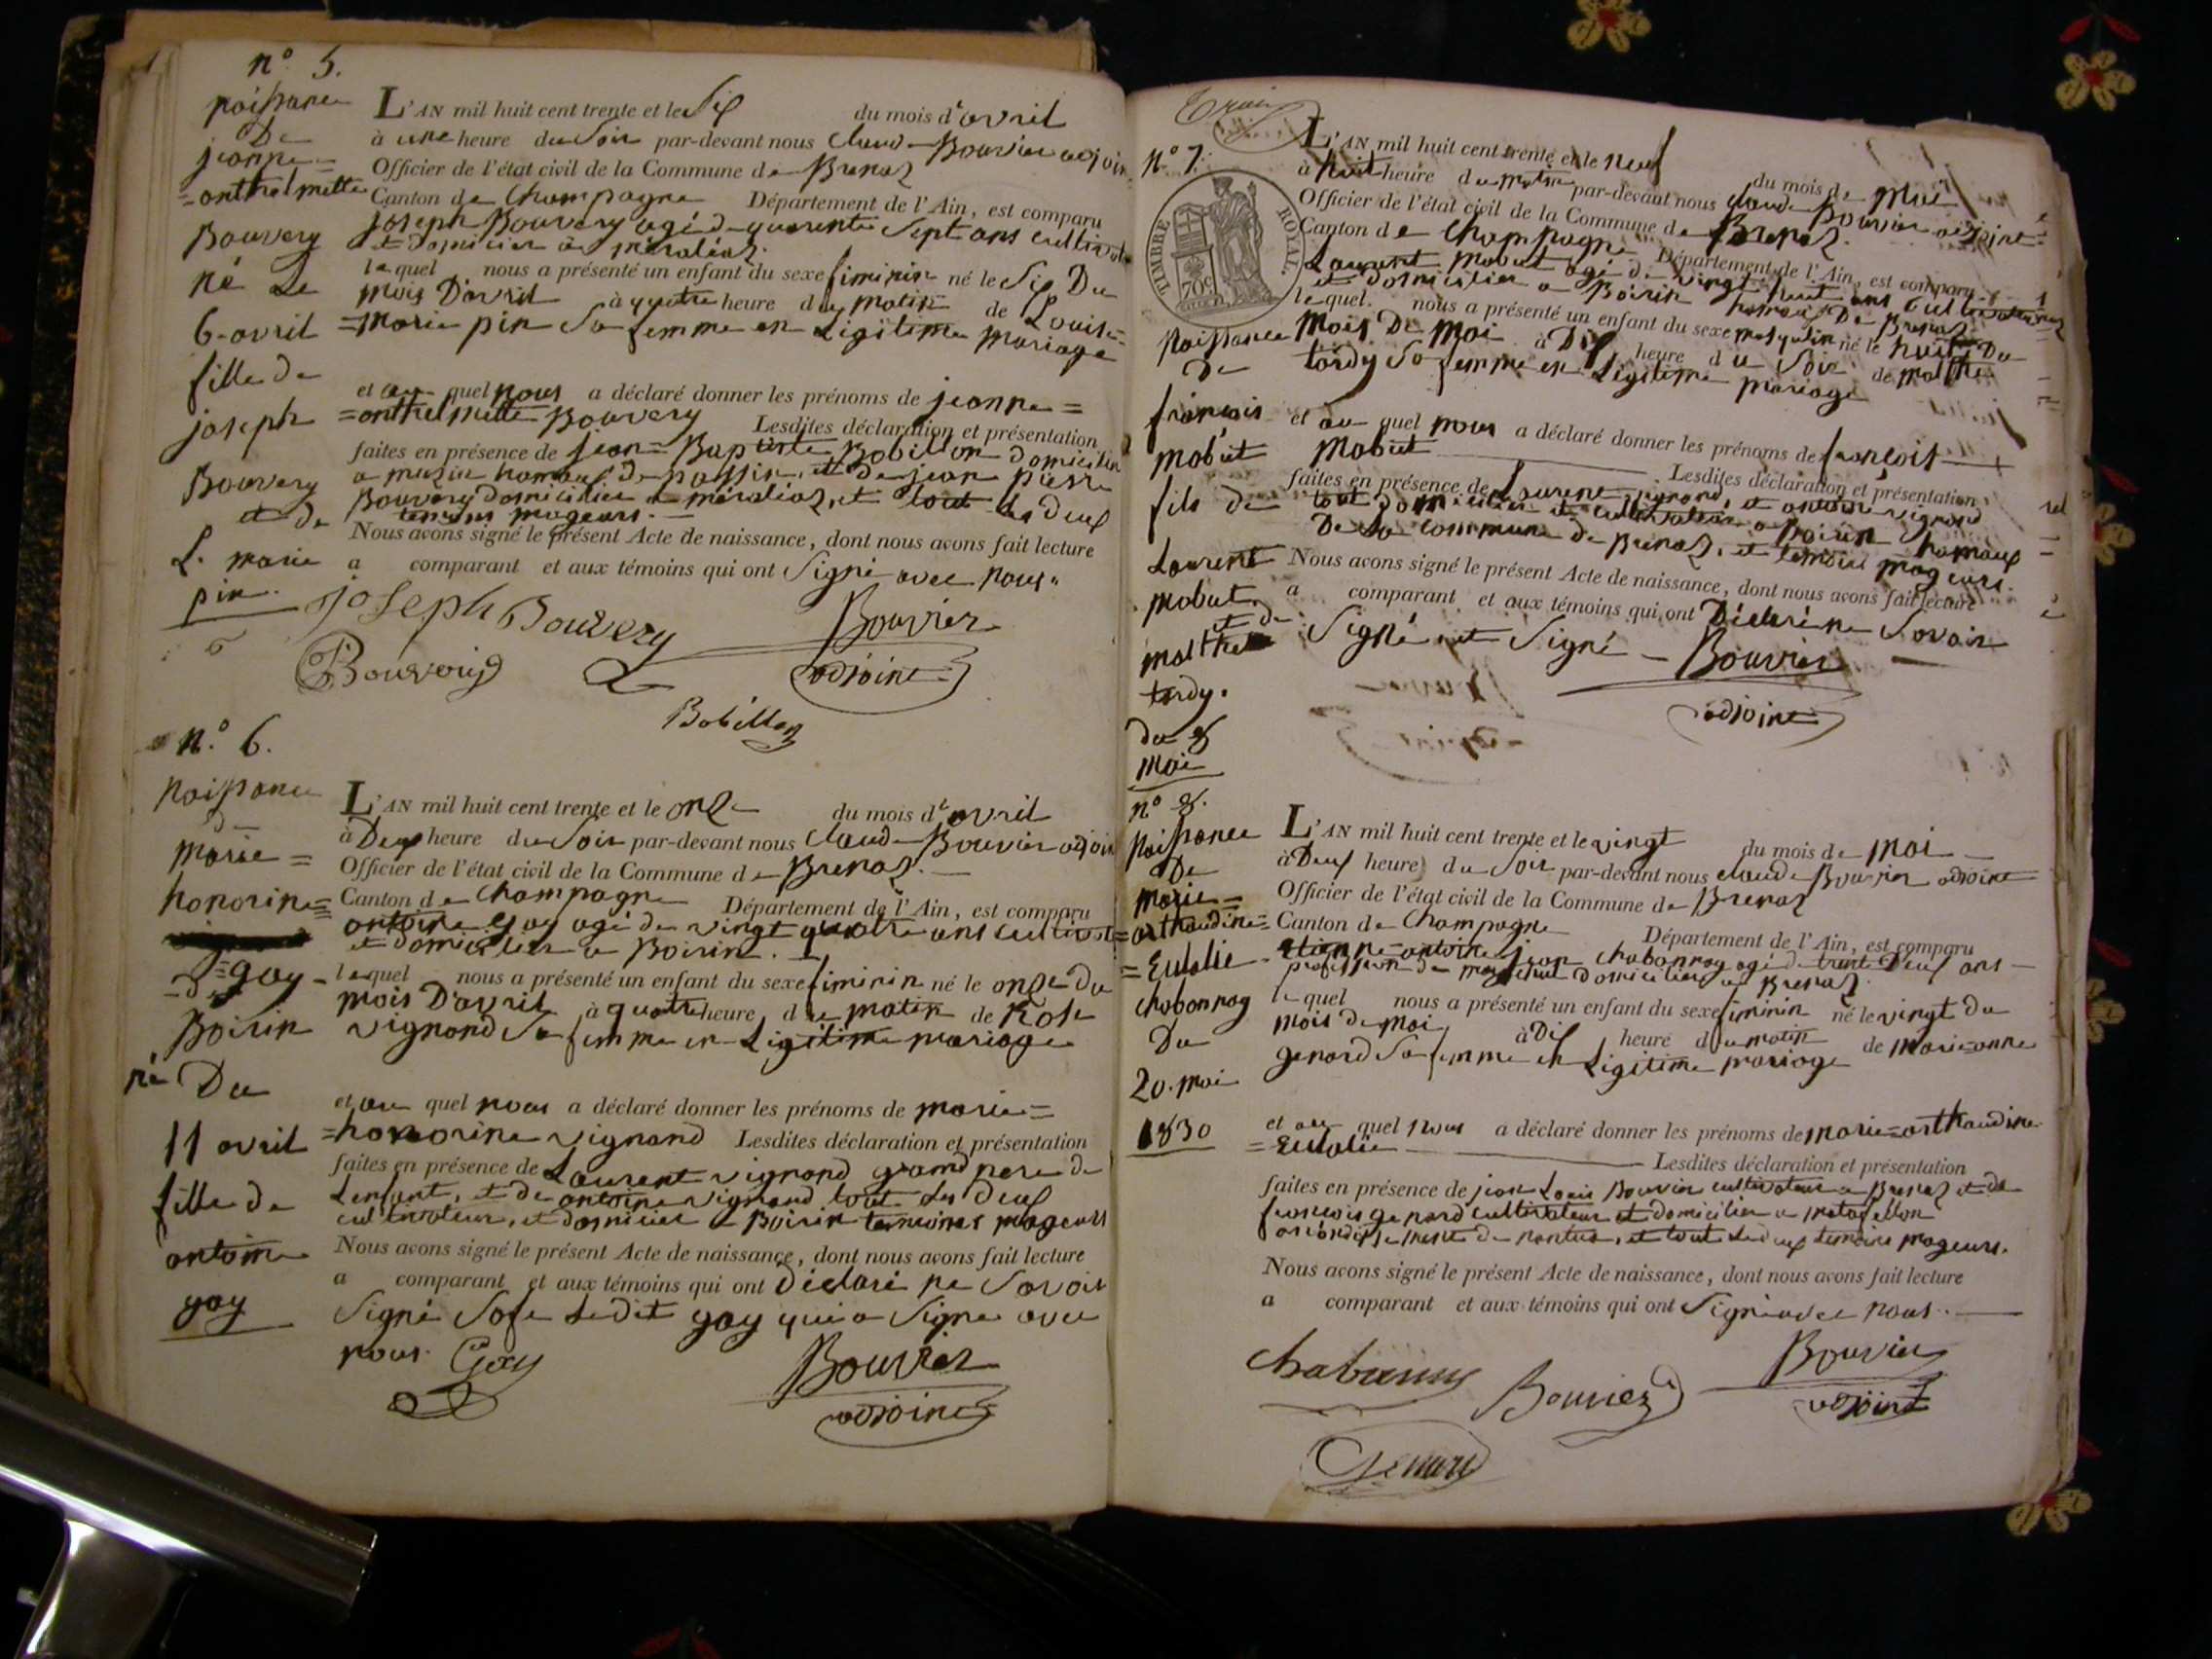 n.° 5.
naissance
De
jeanne =
= onthelmette
Bouvery
né Le
6 avril
fille de
joseph
Bouvery
et de
L. marie
pin.
L'AN mil huit cent trente et le Six du mois d'avril
à une heure du Soir par-devant nous Claude Bouvier adjoin
Officier de l'état civil de la Commune de Brenaz
Canton de Champagne Département de l'Ain, est comparu
joseph Bouvery agé de quarente Sept ans cultivate
et domicilier a méraléaz.
lequel nous a présenté un enfant du sexe fiminin né le Six Du
mois D'avril à quatre heure du matin de Louise =
= Marie pin Sa femme en Ligitime mariage
et au quel nous a déclaré donner les prénoms de jeanne =
= onthelmette Bouvery Lesdites déclaration et présentation
faites en présence de jean = Baptiste Bobillon domicilier
a muzin hamaux de passin, et de jean pierre
Bouvery domicilier a méraléaz, et tout les deux
temoins mageurs.
Nous avons signé le présent Acte de naissance, dont nous avons fait lecture
a comparant et aux témoins qui ont Signé avec nous
joseph Bouvery
Bouvier
adjoint
Bobillon
n.° 6.
naissance
de
marie =
honorine =
= goy
Boirin
né Du
11 avril
fille de
antoine
goy
L'AN mil huit cent trente et le onze du mois d'avril
à Deux heure du Soir par-devant nous Claude Bouvier adjoin
Officier de l'état civil de la Commune de Brenaz.
Canton de Champagne Département de l'Ain, est comparu
antoine goy agé de vingt quatre ans cultivate
et domicilier a Boirin.
lequel nous a présenté un enfant du sexe fiminin né le onze du
mois D'avril à quatre heure du matin de Rose
vignand Sa femme en Ligitime mariage
et au quel nous a déclaré donner les prénoms de marie =
= honorine vignand Lesdites déclaration et présentation
faites en présence de Laurent vignand grand pere de
Lenfant, et de antoine vignand tout les deux
cultivateur, et domicilier a Boirin temoines mageurs
Nous avons signé le présent Acte de naissance, dont nous avons fait lecture
a comparant et aux témoins qui ont déclaré ne Savoir
Signé Sofe Ledit goy qui a Signe avec
nous. Goy
Bouvier
adjoint
n.° 7.
TIMBRE ROYAL.
70c
naissance
de
françois
mobut
fils de
Laurent
mobut
et de
malthe
tardy.
du 8
Mai
L'AN mil huit cent trente et le neuf du mois de Mai
à huit heure du matin par-devant nous claude Bouvier adjoint
Officier de l'état civil de la Commune de Brenaz.
Canton de Champagne Département de l'Ain, est comparu
Laurent mobut agé de vingt huit ans cultivateur
et domicilier a Boirin hamaux De Brenaz
lequel nous a présenté un enfant du sexe masqulin né le huit Du
mois De Mai à Dix heure du Soir de malthe
tardy Sa femme en Légitime mariage
et au quel nous a déclaré donner les prénoms de françois
Mobut Lesdites déclaration et présentation
faites en présence de Laurent vignand, et antoine vignand
tout domicilier et cultivateur a Boirin hamaux
De La Commune de Brenaz, et temoins mageurs.
Nous avons signé le présent Acte de naissance, dont nous avons fait lecture
a comparant et aux témoins qui ont Déclaré ne Savoir
Signé et Signé Bouvier
adjoint
n° 8.
naissance
De
marie =
= orthaudine =
= Eulalie
chabonnay
Du
20. mai
1830
L'AN mil huit cent trente et le vingt du mois de Mai
à Deux heure du Soir par-devant nous claude Bouvier adjoint
Officier de l'état civil de la Commune de Brenaz
Canton de Champagne Département de l'Ain, est comparu
etienne antoine jean chabonnay agé de trente Deux ans
profession de marechal domicilier a Brenaz.
lequel nous a présenté un enfant du sexe fiminin né le vingt du
mois de mai à Dix heure du matin de marie = anne
genard Sa femme en Ligitime mariage
et au quel nous a déclaré donner les prénoms de marie = orthaudine
= Eulalie Lesdites déclaration et présentation
faites en présence de jean Louis Bouvier cultivateur a Brenaz et de
francois genard cultivateur et domicilier a matafellon
arrondissement de nantua, et tout Les deux temoins mageurs.
Nous avons signé le présent Acte de naissance, dont nous avons fait lecture
a comparant et aux témoins qui ont Signé avec nous.
Bouvier
Bouvier
adjoint
Genard